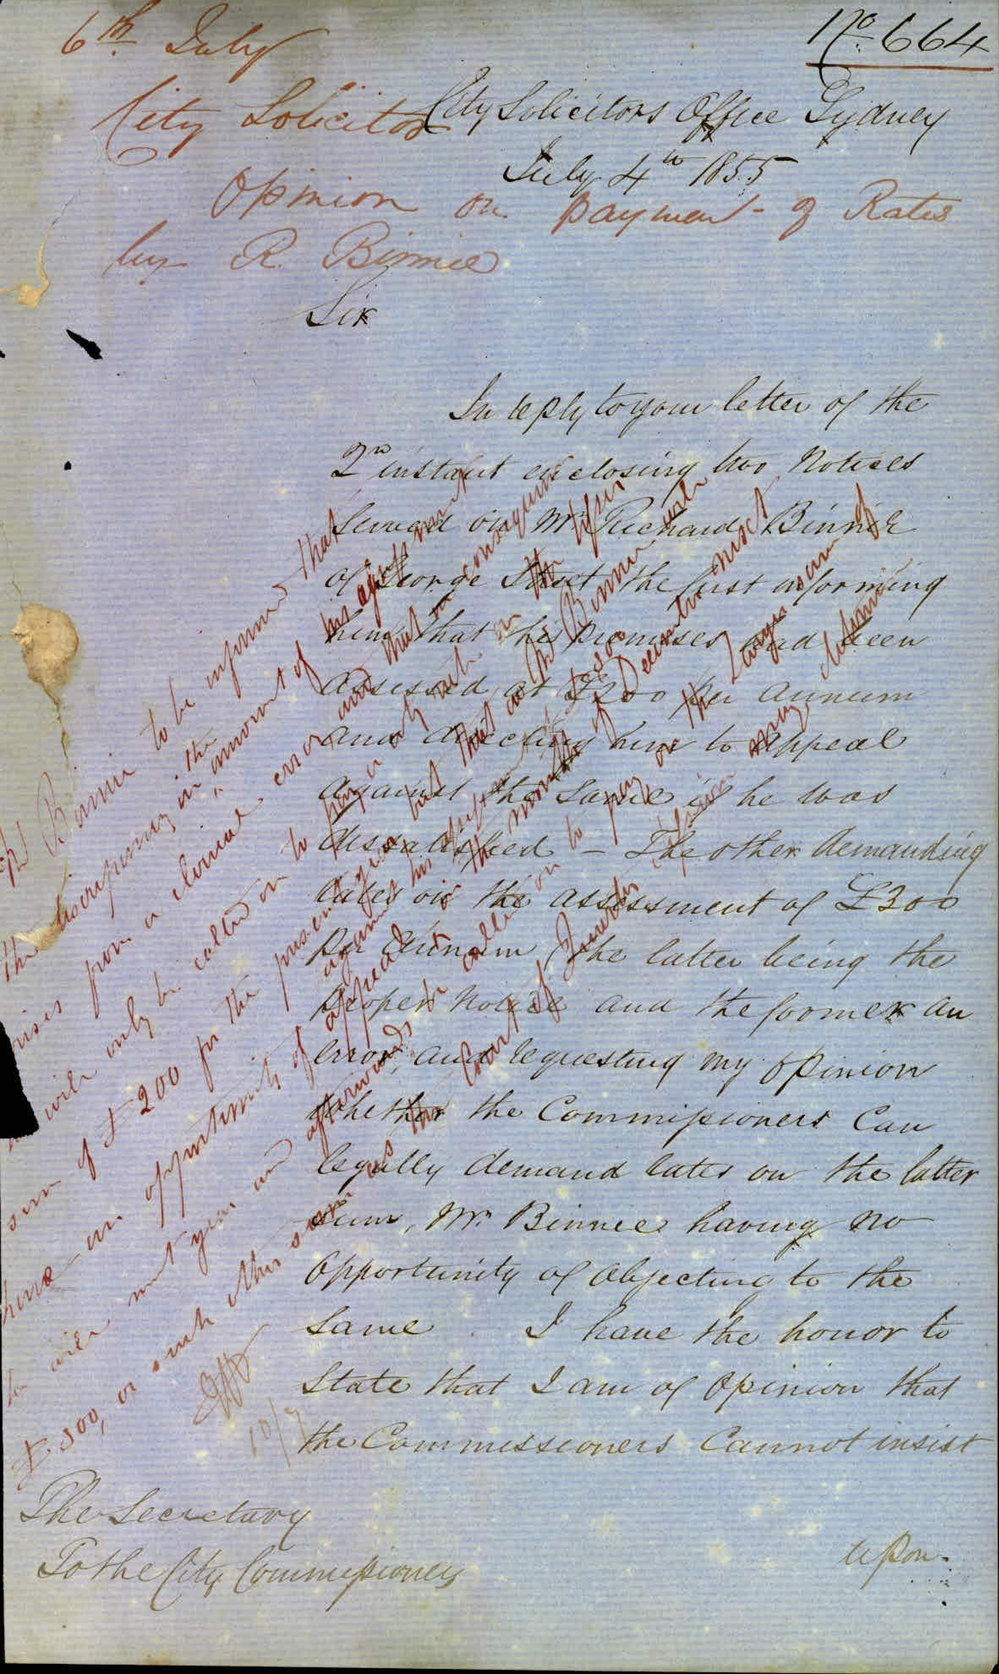 No. 664
6th July
City Solicitor
Opinion on payment of Rates
by R. Binnie
City Solicitors Office Sydney
July 4th 1855
Sir
In reply to your letter of the
2nd instant enclosing two Notices
Served on Mr Richard Binnie
of George Street the first informing
him that his premises had been
assessed at £200 per Annum
and directing him to Appeal
against the Same if he was
dissatisfied – The other demanding
rates on the assessment of £300
Per Annum (the latter being the
proper Notice and the former an
error, and requesting my opinion
Whether the Commissioners Can
legally demand rates on the latter
Sum, Mr Binnie having no
opportunity of Objecting to the
Same. I have the honor to
State that I am of Opinion that
the Commissioners Cannot insist
upon
The Secretary
To the City Commissioners
Mr Binnie to be informed that
the discrepancy in the amount of his assessment
arises from a clerical error and that in consequence
he will only be called on to pay a rate on the
sum of £200 for the present year but that as Mr Binnie will
have an opportunity of appeal in the month of December next
he will next year and afterwards be called on to pay on the larger sum of
£300, or such other sum as the Court of Quarter Session may determine
10/7